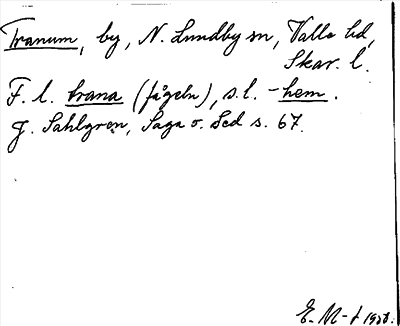 Tranum, by, N. Lundby sn, Valle hd,
Skar. l.
F. l. trana (fågeln), s.l. -hem.
J. Sahlgren, Saga o. Sed s. 67.
E. M-t